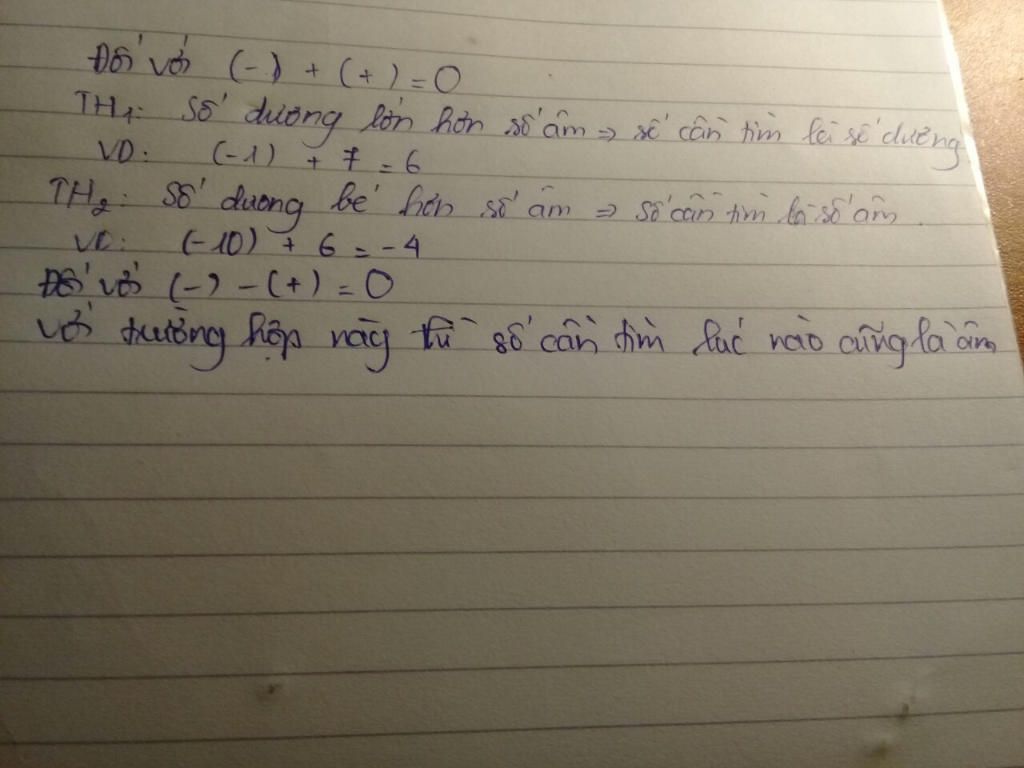 Đối với (-) + (+) = 0
TH1: Số dương lớn hơn số âm => số cần tìm là số dương
VD: (-1) + 7 = 6
TH2: Số dương bé hơn số âm => số cần tìm là số âm.
VD: (-10) + 6 = -4
Đối với (-) - (+) = 0
Với trường hợp này thì số cần tìm lúc nào cũng là âm